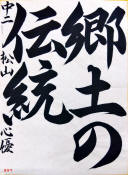 郷土の
伝統
中二 松山 心優